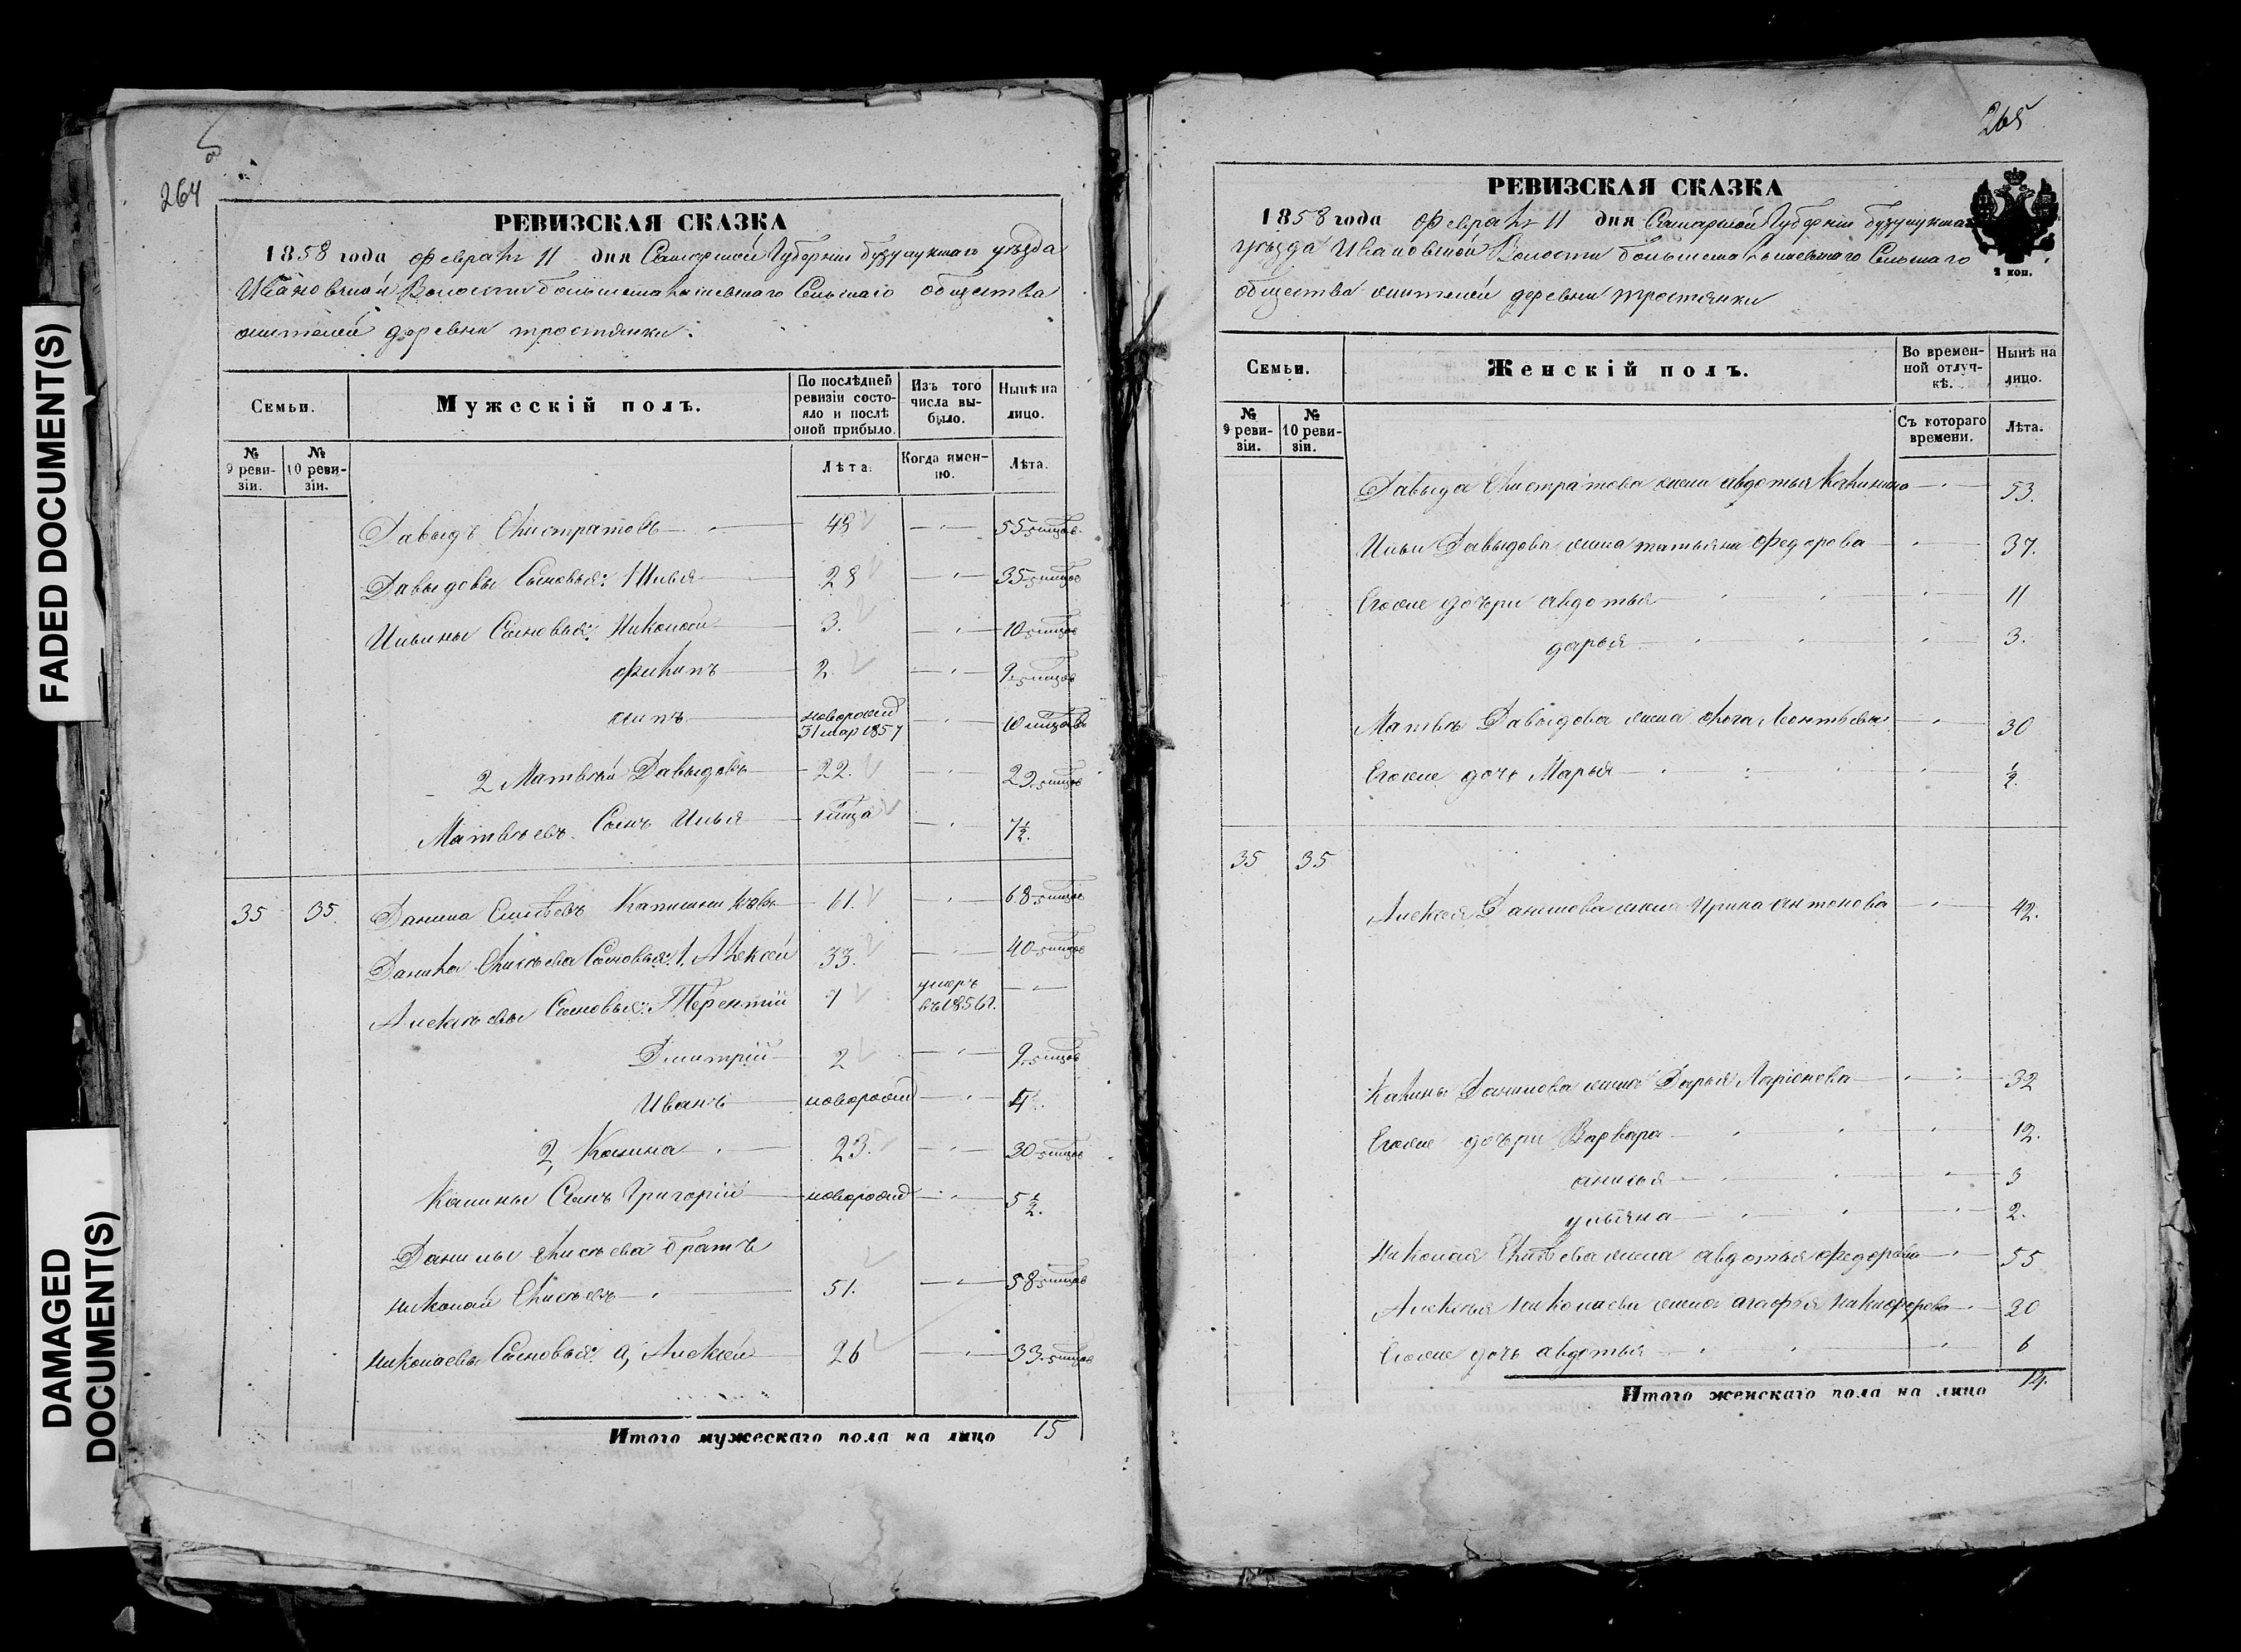 FADED DOCUMENT(S)
DAMAGED
DOCUMENT(S)
264
РЕВИЗСКАЯ СКАЗКА
1858 года февраля 11 дня Самарской Губернии бузулукскаго уѣзда
Ивановской Волости Сельскаго общества
жителей деревни тростянки.
Семьи.
Мужескій полъ.
По послѣдней ревизіи состояло и послѣ оной прибыло.
Изъ того числа выбыло.
Нынѣ на лицо.
№ 9 ревизіи.
№ 10 ревизіи.
Лѣта.
Когда именно.
Лѣта.
Давыдъ Елистратовъ 48 55
Давыдовы Сыновья: 1 Илья 28 35
Ильины Сыновья: Николай 3. 10
Филипъ 2. 9
новорожд 31 мар 1857 10
2 Матвѣй Давыдовъ 22. 29
Матвѣевъ Сынъ Илья 7½.
35 35. Данила Елисѣевъ 61. 68
Данила Елисѣева Сыновья: 1, Алексѣй 33. 40
Алексѣевы Сыновья: Терентій 7 умеръ въ 1856 г.
Дмитрій 2 9
Иванъ новорожд 4
2, Калина 23. 30
Калины Сынъ Григорій новорожд 5½.
Данилы Елисѣева братъ
Николай Елисѣевъ 51. 58
Николаевы Сыновья: а, Алексѣй 26 33.
Итого мужескаго пола на лицо 15
265
РЕВИЗСКАЯ СКАЗКА
1858 года февраля 11 дня Самарской Губерніи бузулукскаго
уѣзда Ивановской Волости Сельскаго
общества жителей деревни тростянки
2 коп.
Семьи.
Женскій полъ.
Во временной отлучкѣ.
Нынѣ на лицо.
№ 9 ревизіи.
№ 10 ревизіи.
Съ котораго времени.
Лѣта.
Давыда Елистратова жена авдотья Калинина 53.
Ильи Давыдова жена татьяна Федорова 37.
Егоже дочери авдотья 11
дарья 3.
Матвѣя Давыдова жена Леонтьева 30
Егоже дочь Марья ½.
35 35
Алексѣя Данилова жена Ирина антонова 42.
Калины Данилова жена Дарья Ларіонова 32
Егоже дочери Варвара 12.
анисья 3
ульяна 2.
Николая Елисѣева жена авдотья федорова 55
Алексѣя Николаева жена агафья Никифорова 20
Егоже дочь авдотья 6
Итого женскаго пола на лицо 14.